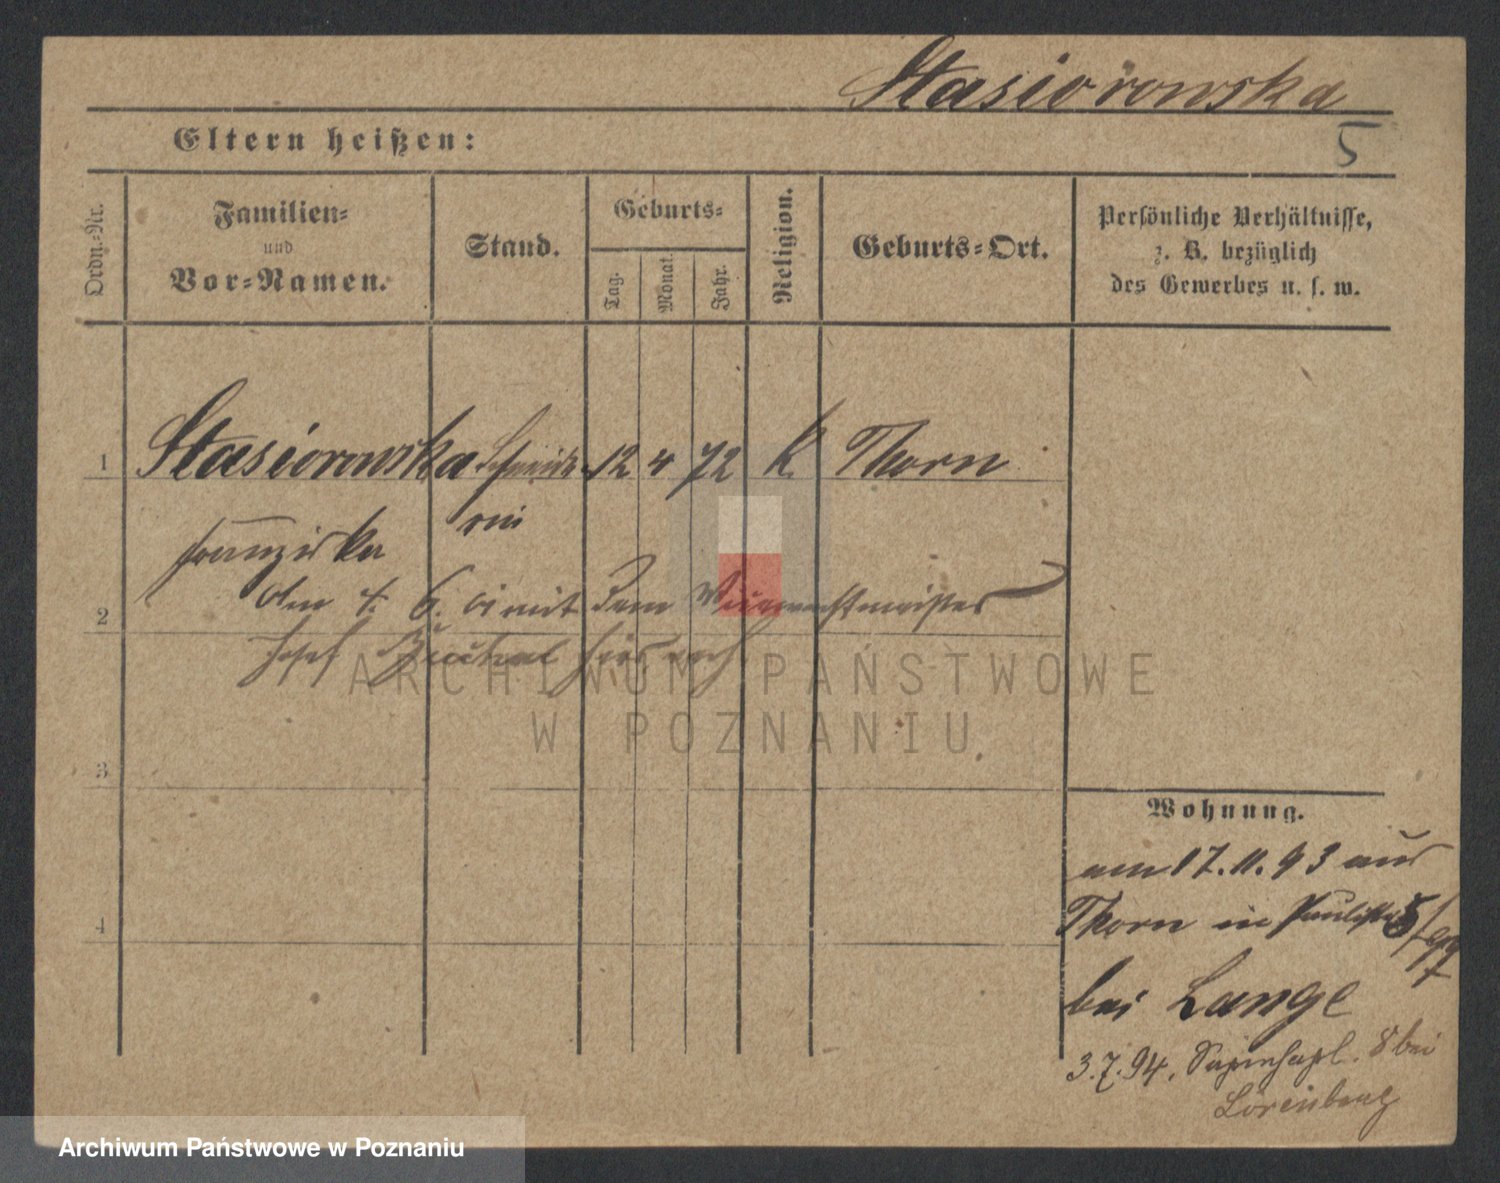 Stasiorowska
5
Eltern heißen:
Ordn.-Nr.
Familien-
und
Vor-Namen.
Stand.
Geburts-
Tag.
Monat.
Jahr.
Religion.
Geburts-Ort.
Persönliche Verhältnisse,
z. B. bezüglich
des Gewerbes u. s. w.
1 Stasiorowska 12 4 72 K Thorn
rin
Franziska
2
mit dem
Josef
ARCHIWUM PAŃSTWOWE
W POZNANIU
3
Wohnung.
am 17.11.93 aus
4
Thorn in
bei Lange
3.7.94. Sapiehapl. 8 bei
Archiwum Państwowe w Poznaniu